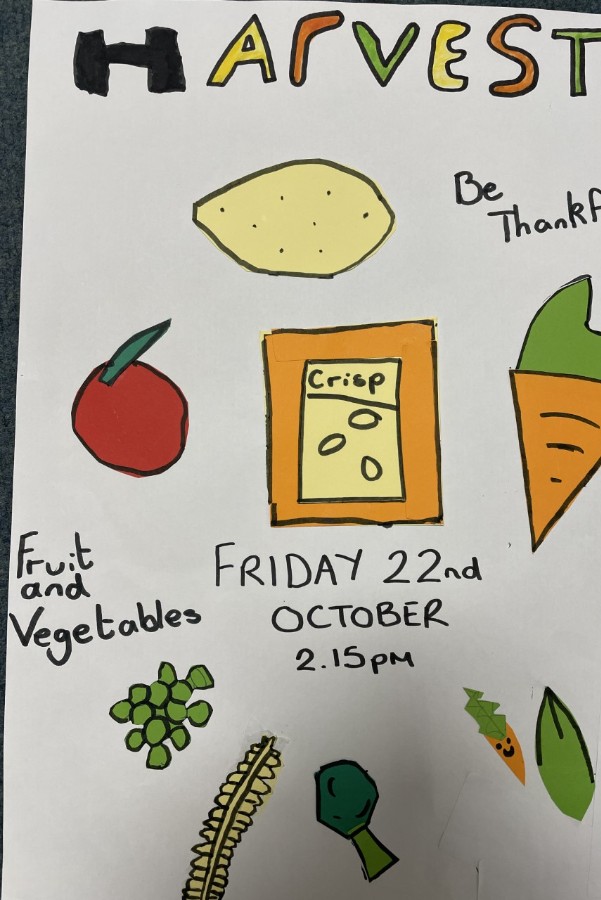 HArVEST
Be
Thankf
Crisp
Fruit
and
Vegetables
FRIDAY 22nd
OCTOBER
2.15pm